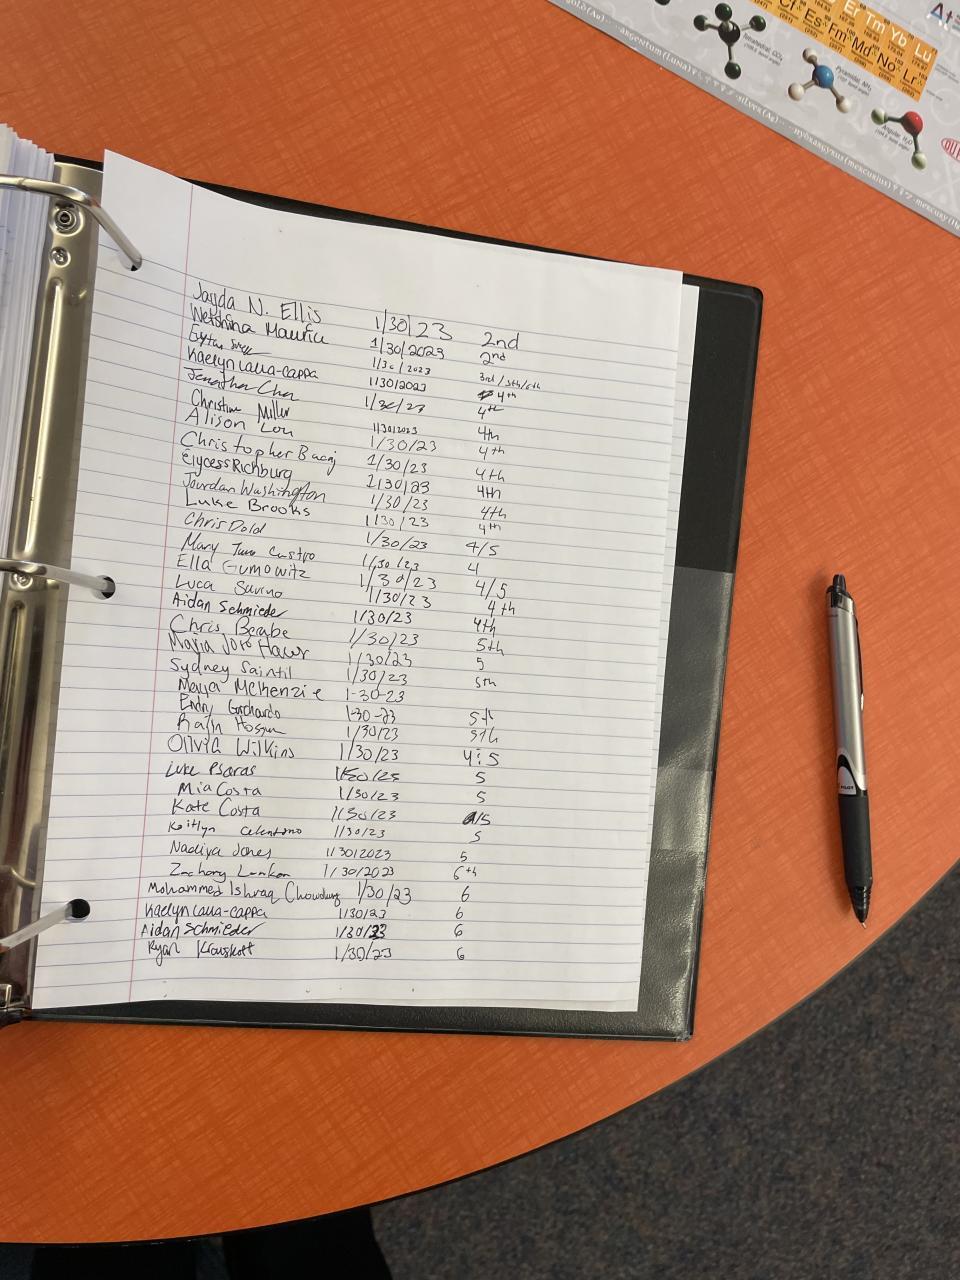 Er Tm Yb Lu
Cf Es Fm Md No Lr
At
Tetrahedral, CCl₄
Pyramidal, NH₃
Angular, H₂O
GOLD(Au) argentum(LUNA) SILVER(Ag) HYDRARGYRUS(mercurius) mercury(H
Jayda N. Ellis 1/30/23 2nd
Wetshina Maurice 1/30/2023 2nd
1/30/2023 3rd/5th/6th
Kaelyn Calla-cappa 1/30/2023 4th
Jonathan Chen 1/30/23 4th
Christine Miller 1/30/2023 4th
Alison Lou 1/30/23 4th
Christopher 1/30/23 4th
Elycess Richburg 1/30/23 4th
Jourdan Washington 1/30/23 4th
Luke Brooks 1/30/23 4th
Chris Dold 1/30/23 4/5
Mary Castro 1/30/23 4
Ella Gumowitz 1/30/23 4/5
Luca Savino 1/30/23 4th
Aidan Schmieder 1/30/23 4th
Chris Berabe 1/30/23 5th
Maria 1/30/23 5
Sydney Saintil 1/30/23 5th
Maya McKenzie 1-30-23
1-30-23 5th
1/30/23 5th
Olivia Wilkins 1/30/23 4:5
Luke Psaras 5
Mia Costa 1/30/23 5
Kate Costa 1/30/23 /5
Kaitlyn Celentano 1/30/23 5
Nadiya Jones 1/30/2023 5
Zachary 1/30/2023 6th
Mohammed Ishraq Chowdhury 1/30/23 6
Kaelyn Calla-cappa 1/30/23 6
Aidan Schmieder 1/30/23 6
Ryan Krauskopf 1/30/23 6
PILOT